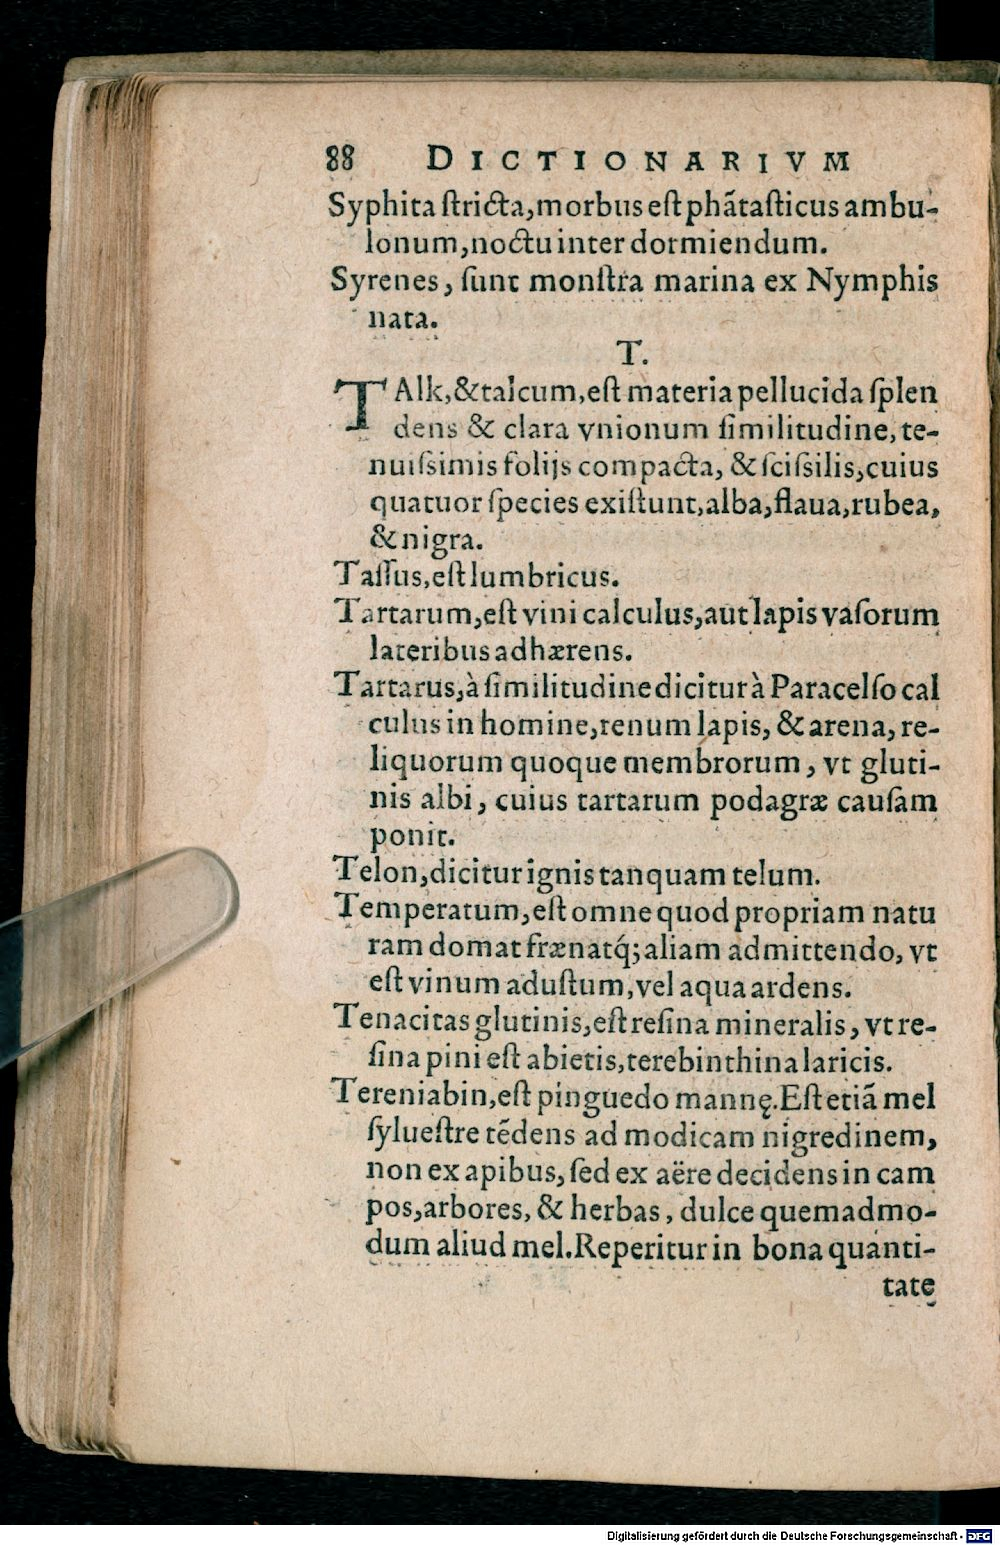 88 DICTIONARIVM
Syphita ſtricta, morbus eſt phãtaſticus ambu-
lonum, noctu inter dormiendum.
Syrenes, ſunt monſtra marina ex Nymphis
nata.
T.
TAlk, & talcum, eſt materia pellucida ſplen
dens & clara vnionum ſimilitudine, te-
nuiſsimis folijs compacta, & ſciſsilis, cuius
quatuor ſpecies exiſtunt, alba, flaua, rubea,
& nigra.
Taſſus, eſt lumbricus.
Tartarum, eſt vini calculus, aut lapis vaſorum
lateribus adhærens.
Tartarus, à ſimilitudine dicitur à Paracelſo cal
culus in homine, renum lapis, & arena, re-
liquorum quoque membrorum, vt gluti-
nis albi, cuius tartarum podagræ cauſam
ponit.
Telon, dicitur ignis tanquam telum.
Temperatum, eſt omne quod propriam natu
ram domat frænatq́; aliam admittendo, vt
eſt vinum aduſtum, vel aqua ardens.
Tenacitas glutinis, eſt reſina mineralis, vt re-
ſina pini eſt abietis, terebinthina laricis.
Tereniabin, eſt pinguedo mannę. Eſt etiã mel
ſylueſtre tẽdens ad modicam nigredinem,
non ex apibus, ſed ex aëre decidens in cam
pos, arbores, & herbas, dulce quemadmo-
dum aliud mel. Reperitur in bona quanti-
tate
Digitalisierung gefördert durch die Deutsche Forschungsgemeinschaft - DFG